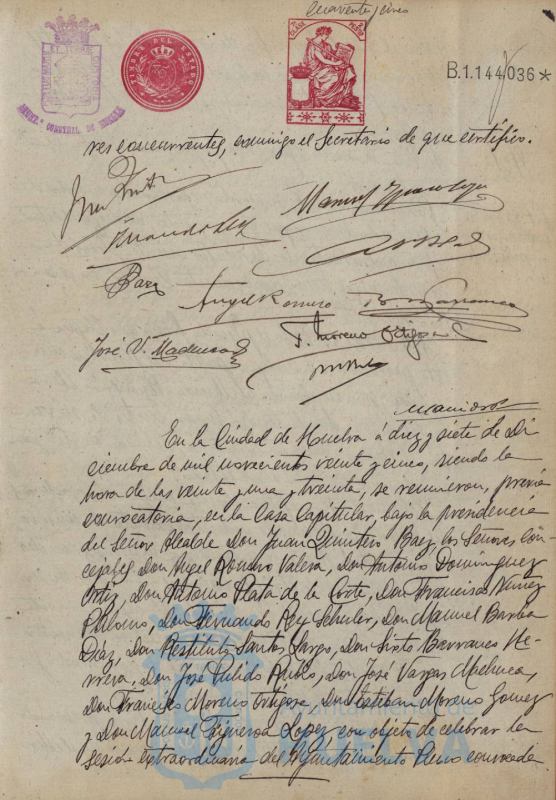 cuarenta y cinco
TIMBRE DEL ESTADO
CLASE
B.1.144,036*
res concurrentes, conmigo el Secretario de que certifico.
Báez
Angel Romero
José V. Machuca
F. Moreno Ortigosa
En la Ciudad de Huelva á diez y siete de Di
ciembre de mil novecientos veinte y cinco, siendo la
hora de las veinte y una y treinta, se reunieron, previa
convocatoria, en la Casa Capitular, bajo la presidencia
del Señor Alcalde Don Juan Quintero Baez los Señores con-
cejales Don Angel Romero Valera, Don Antonio Domínguez
Ortiz, Don Antonio Plata de la Corte, Don Francisco Nuñez
Palomo, Don Fernando Rey Schuler, Don Manuel Barba
Díaz, Don Restituto Santos Largo, Don Sixto Barranco He-
rrera, Don José Pulido Rubio, Don José Vargas Machuca,
Don Francisco Moreno Ortigosa, Don Esteban Moreno Gomez
y Don Manuel Figueroa Lopez con objeto de celebrar la
sesión extraordinaria del Ayuntamiento Pleno convocada